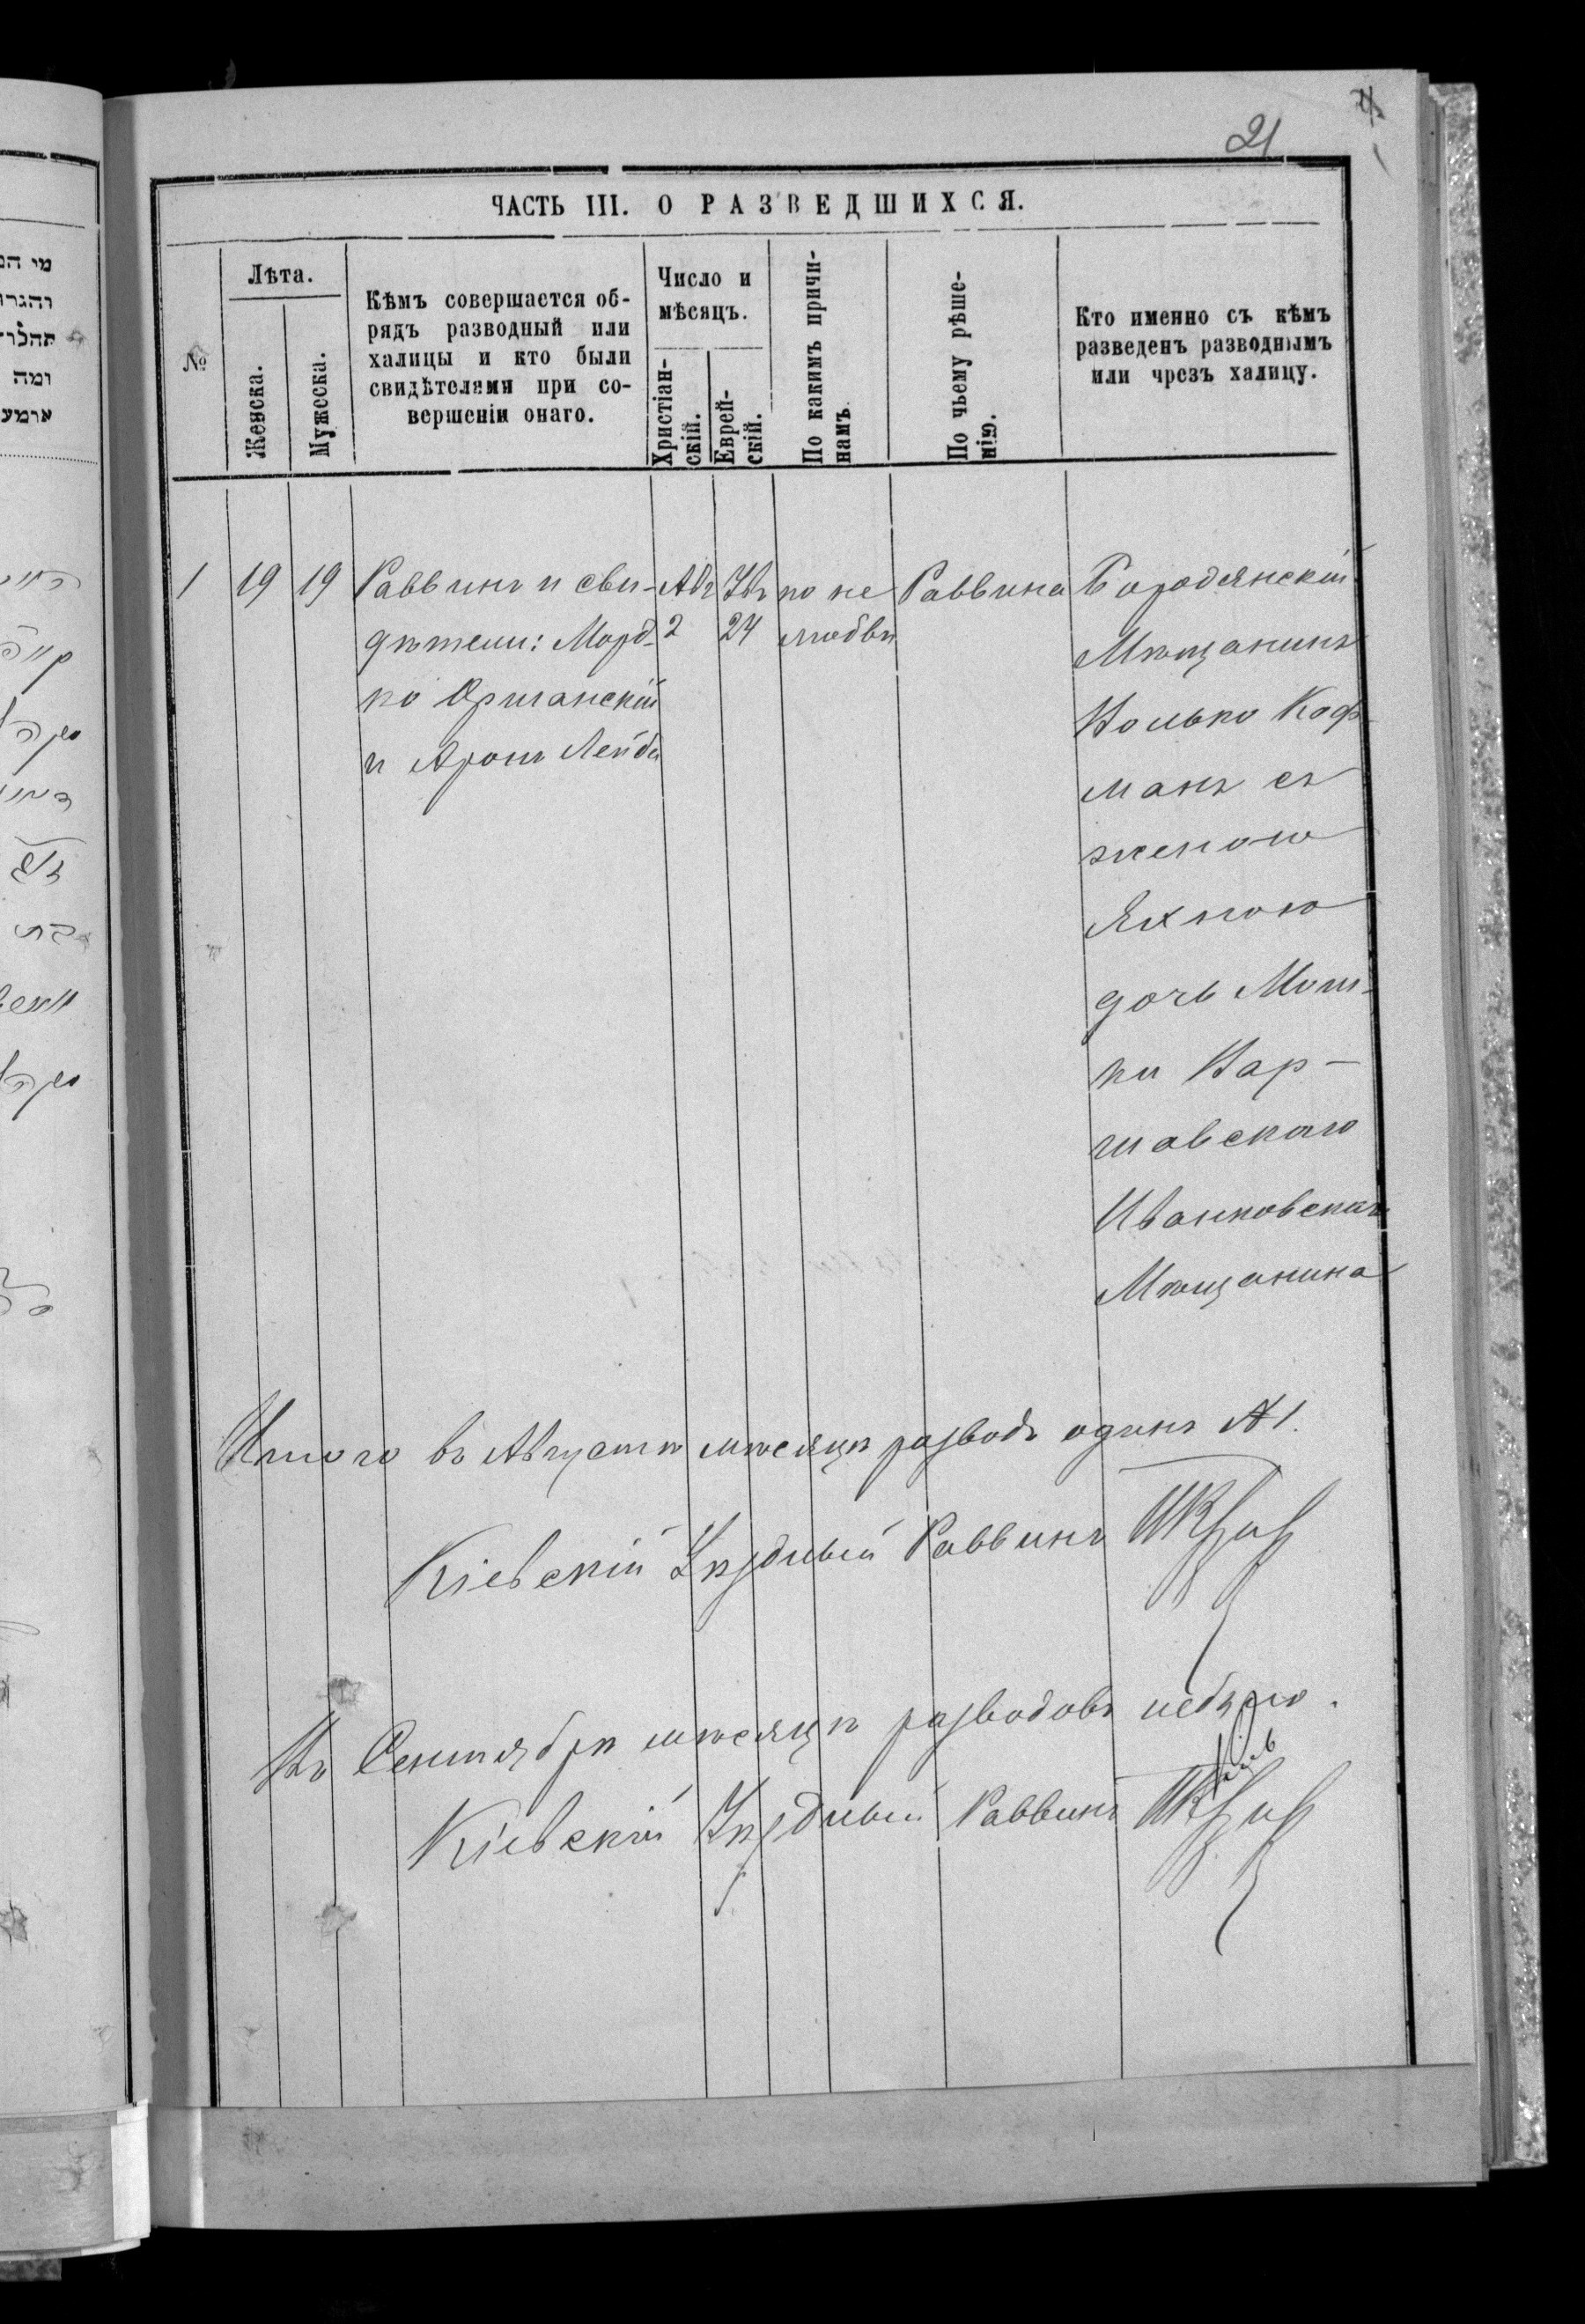 21
ЧАСТЬ III. О РАЗВЕДШИХСЯ.
№
Лѣта.
Женска.
Мужеска.
Кѣмъ совершается об-
рядъ разводный или
халицы и кто были
свидѣтелями при со-
вершеніи онаго.
Число и
мѣсяцъ.
Христіан-
скій.
Еврей-
скій.
По какимъ причи-
намъ
По чьему рѣше-
нію.
Кто именно съ кѣмъ
разведенъ разводнымъ
или чрезъ халицу.
1
19
19
Раввинъ и сви-
дѣтели: Морд-
ко
и Аронъ Лейба
Авг
2
24
по не
любви
Раввина
Бородянскій
Мѣщанинъ
Волько Коф-
манъ съ
женою
Яхною
дочь Мош-
ки Вар-
шавскаго
Иванковскаго
Мѣщанина
Итого въ Августѣ мѣсяцѣ разводъ одинъ № 1.
Кіевскій Уѣздный Раввинъ
Въ Сентябрѣ мѣсяцѣ разводовъ небыло.
Кіевскій Уѣздный Раввинъ